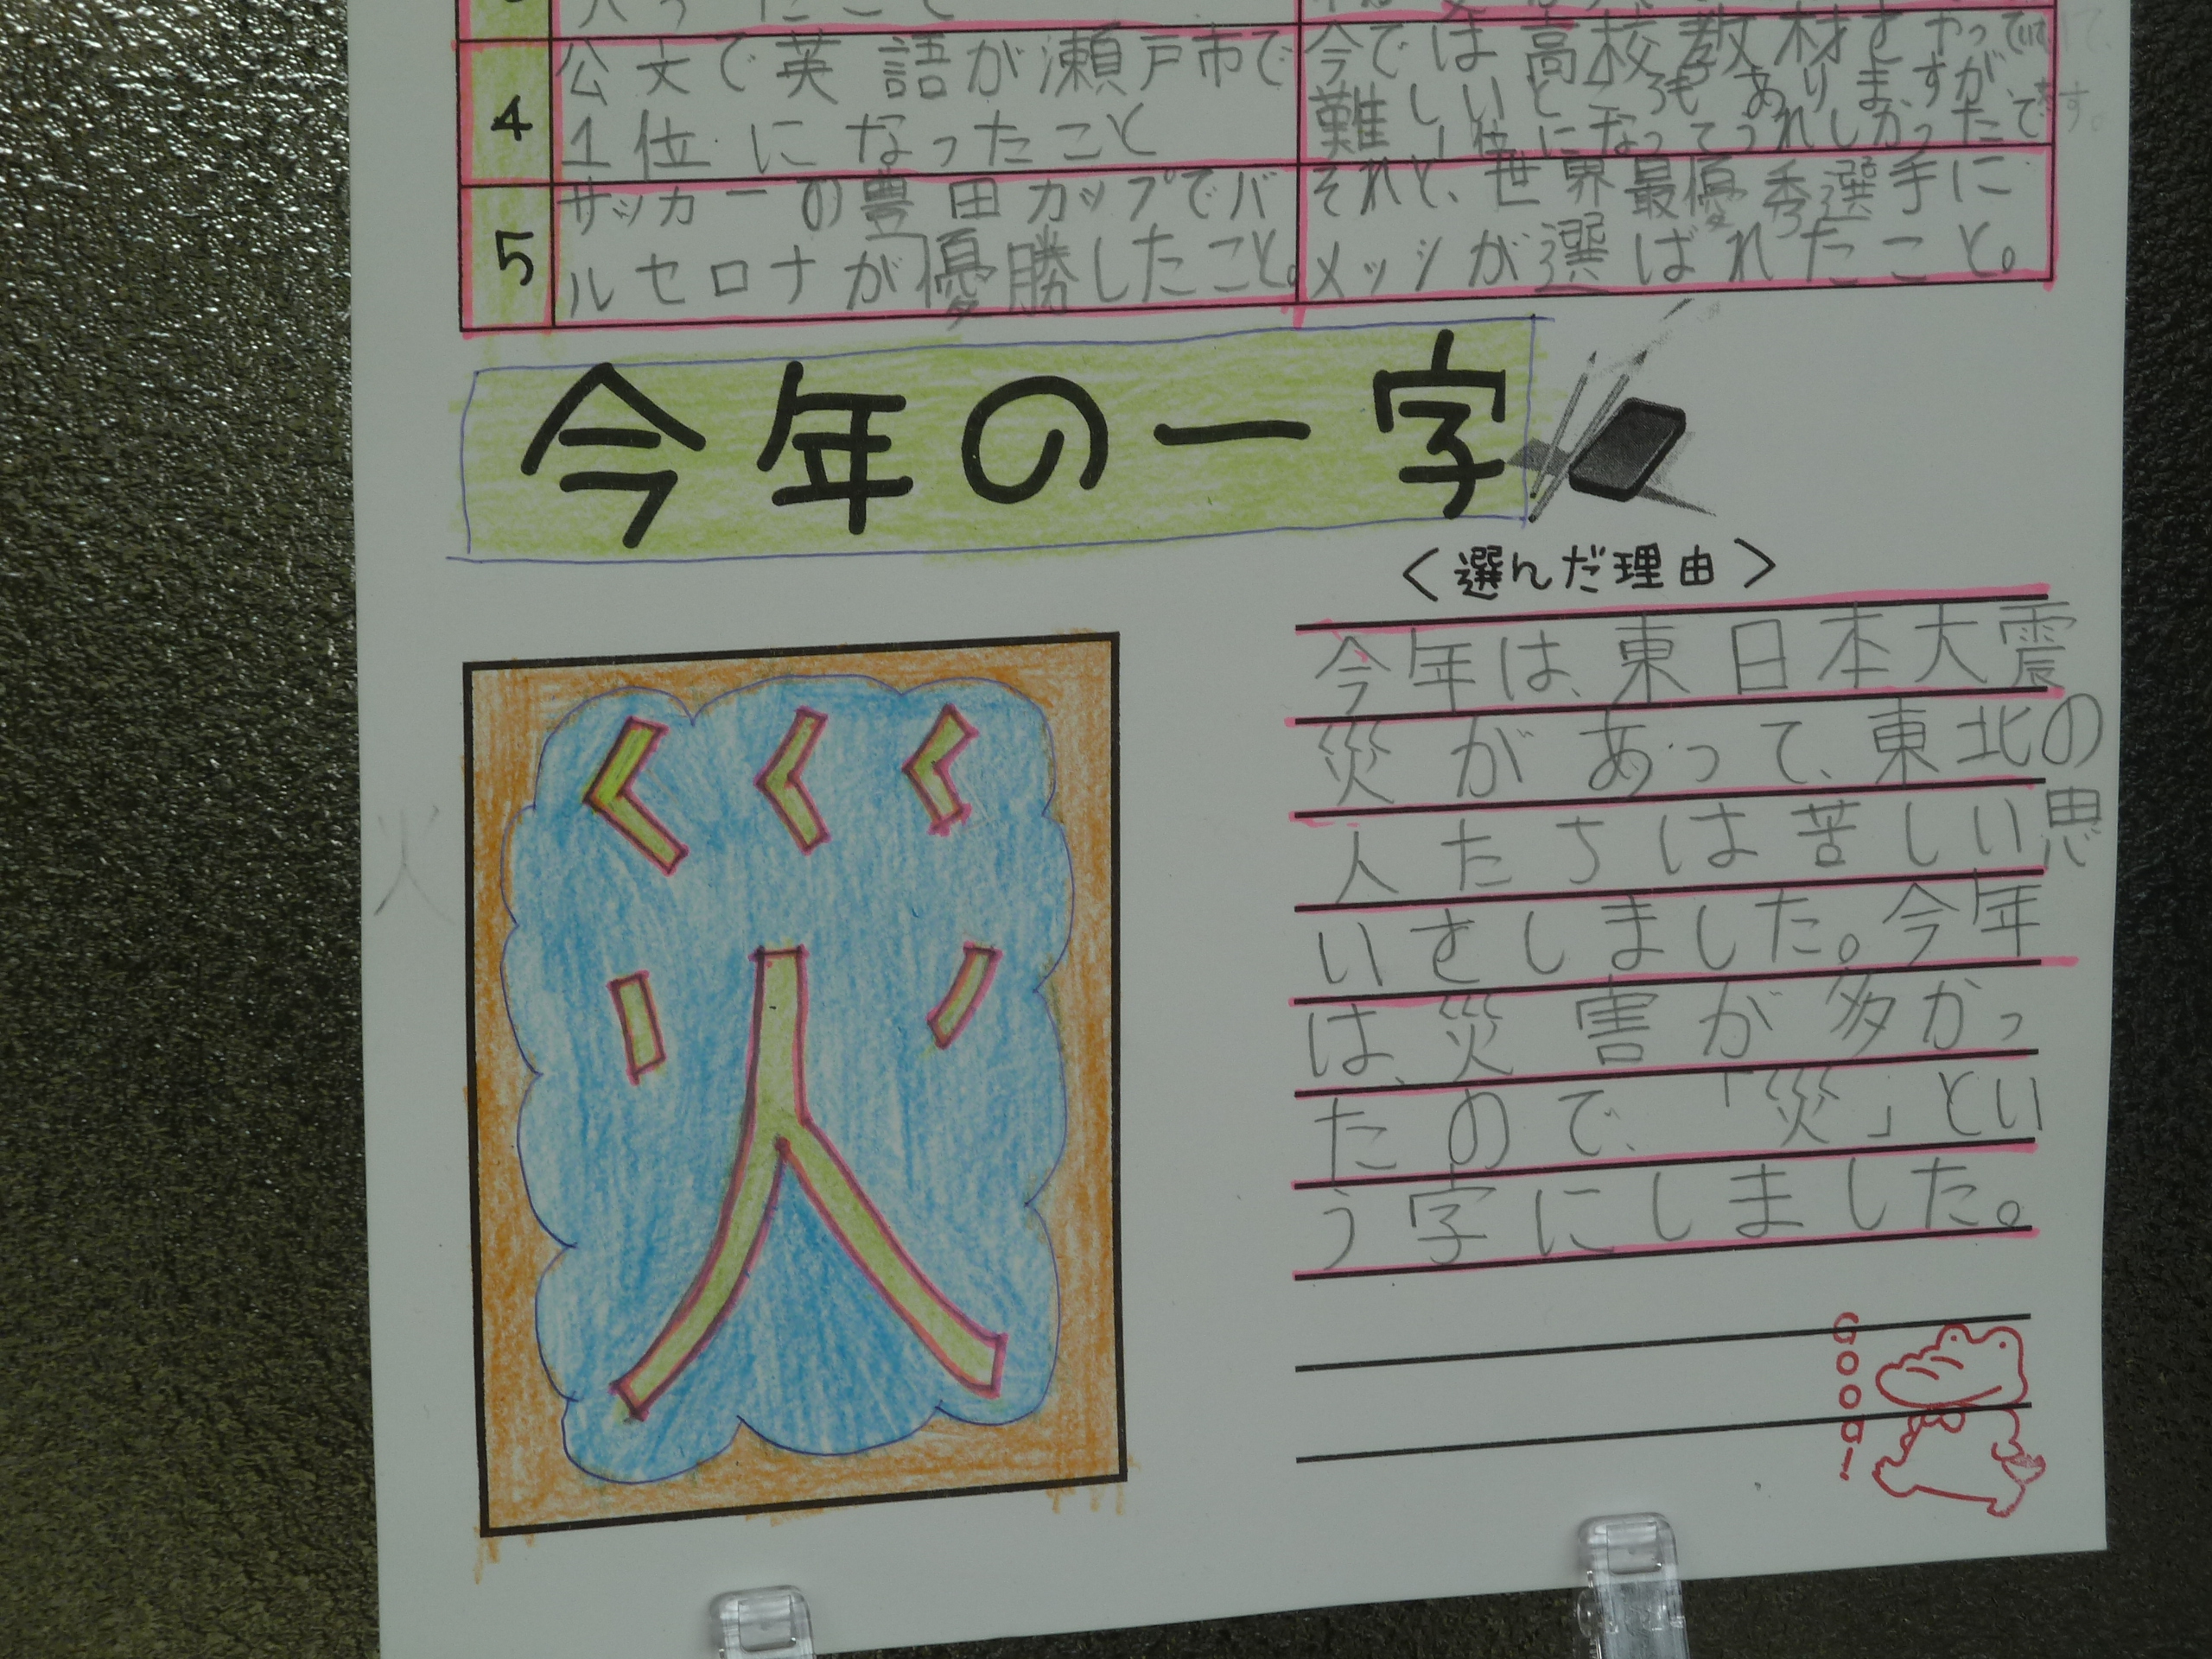 4
公文で英語が瀬戸市で
1位になったこと
今では高校教材をやっていて
難しいところもありますが、
1位になってうれしかったです。
5
サッカーの豊田カップでバ
ルセロナが優勝したこと。
それと、世界最優秀選手に
メッシが選ばれたこと。
今年の一字
<選んだ理由>
災
火
今年は、東日本大震
災があって、東北の
人たちは苦しい思
いをしました。今年
は、災害が多かっ
たので、「災」とい
う字にしました。
Good!